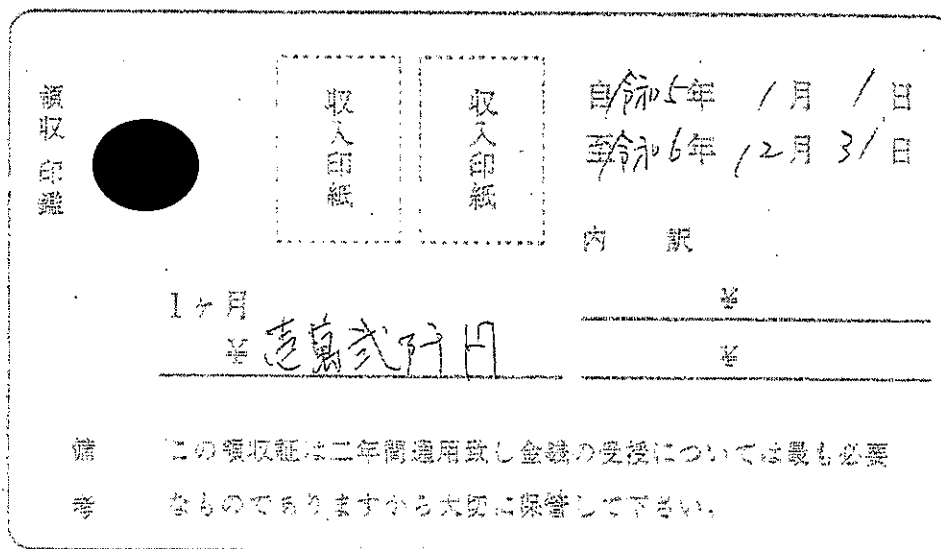 領収印鑑
収入印紙
収入印紙
自令和5年 1月 1日
至令和6年 12月 31日
内 訳
1ヶ月
壱萬弐阡円
備考
この領収証は二年間通用致し金銭の受授については最も必要
なものでありますから大切に保管して下さい。